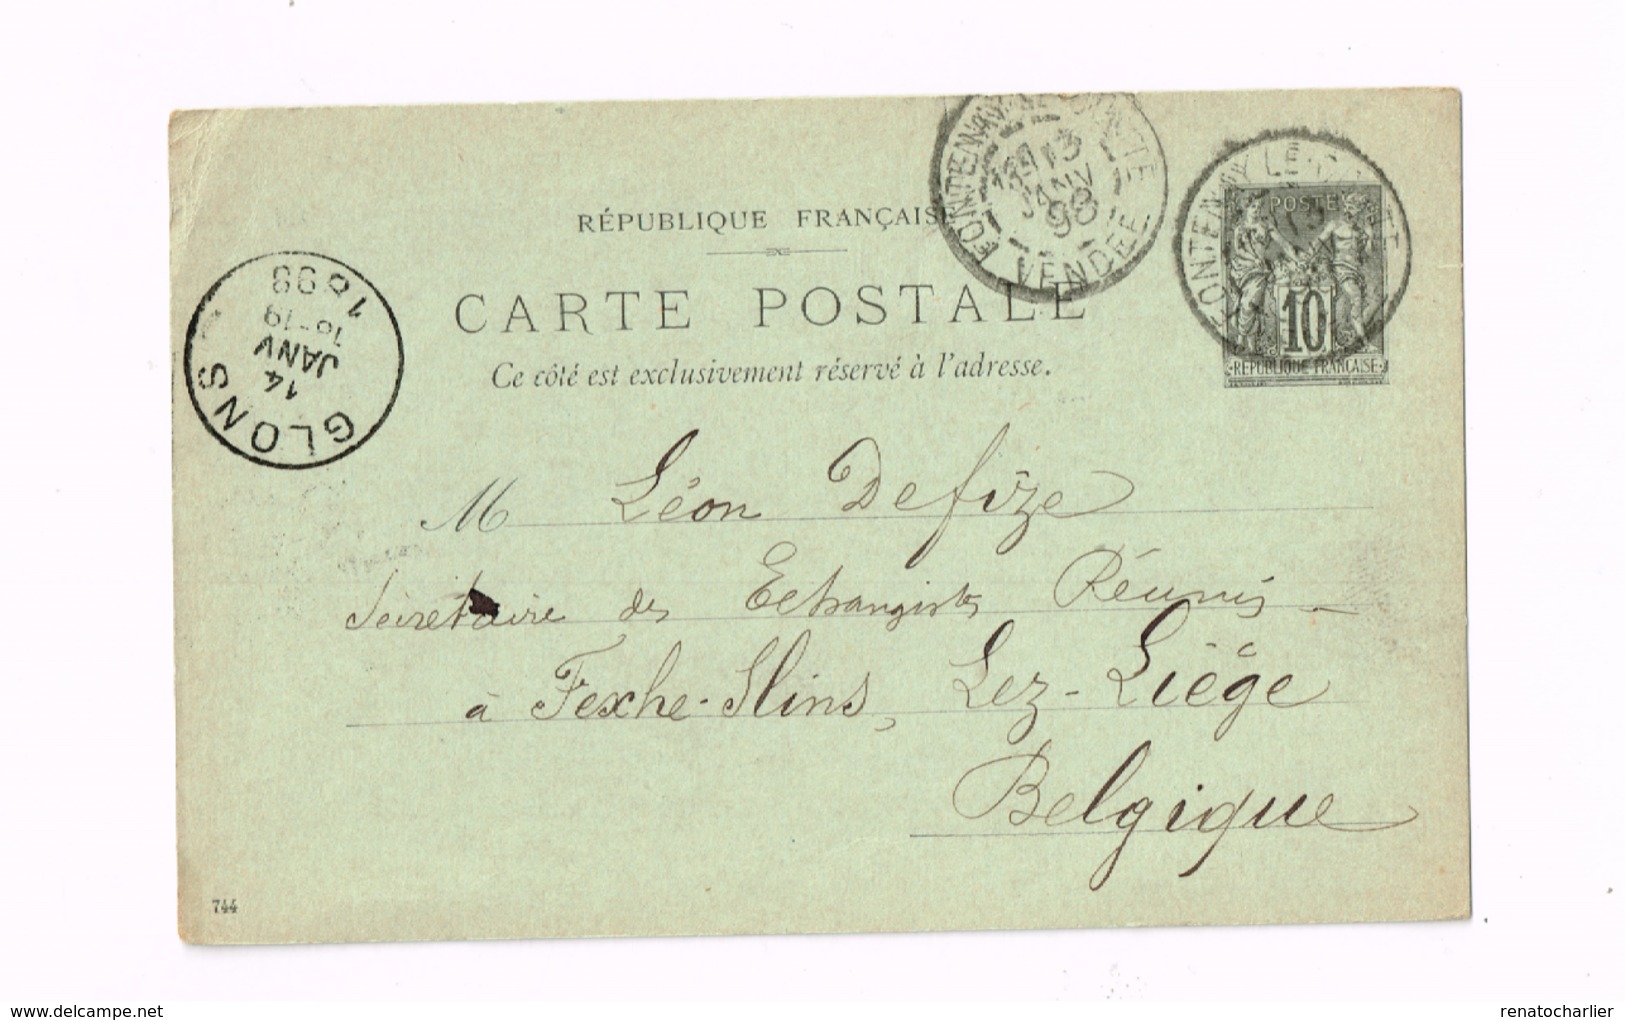 RÉPUBLIQUE FRANÇAISE
CARTE POSTALE
Ce côté est exclusivement réservé à l'adresse.
FONTENAY-LE-COMTE
13
JANV
98
VENDÉE
FONTENAY-LE-COMTE
POSTES
10
RÉPUBLIQUE FRANÇAISE
GLONS
14
JANV
18-19
1898
M Léon Defize
Secrétaire des Echangistes Réunis -
à Fexhe-Slins, Lez-Liège
Belgique
744
delcampe.net
renatocharlier